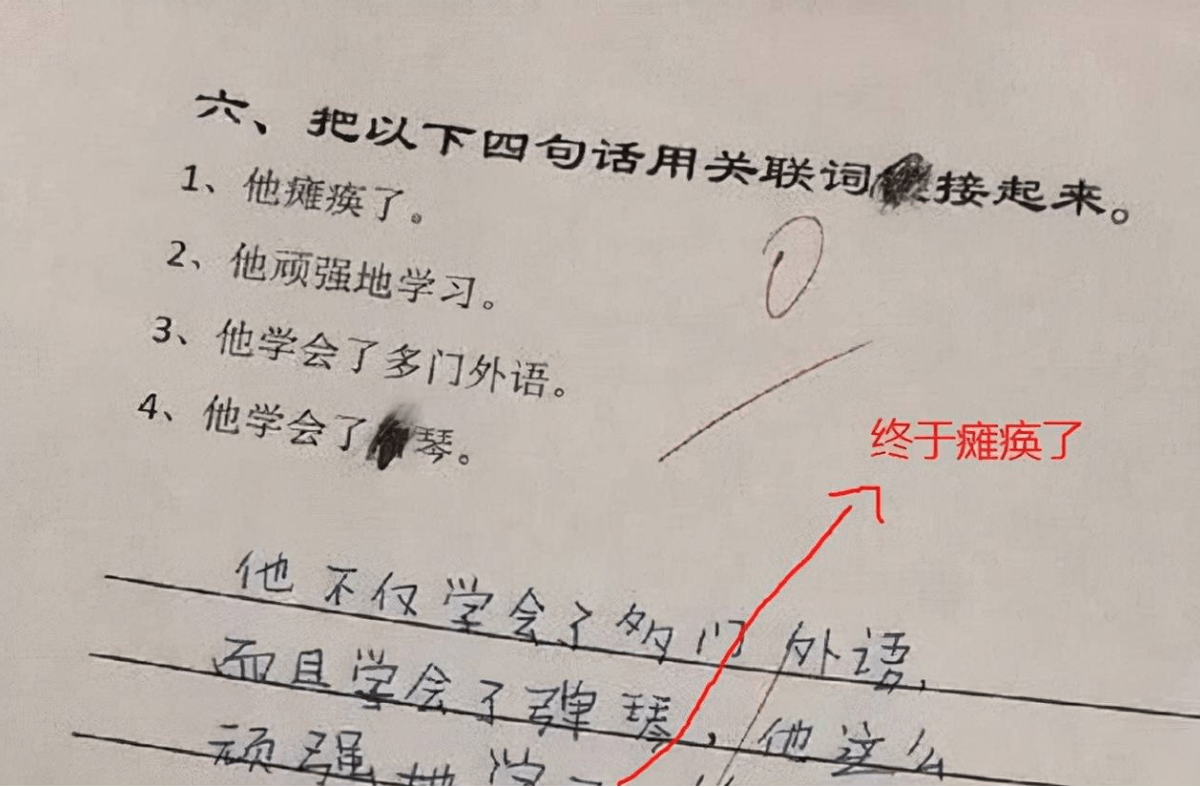 六、把以下四句话用关联词接起来。
1、他瘫痪了。
2、他顽强地学习。
3、他学会了多门外语。
4、他学会了琴。
终于瘫痪了
他不仅学会了多门外语,
而且学会了弹琴,他这么
顽强地学